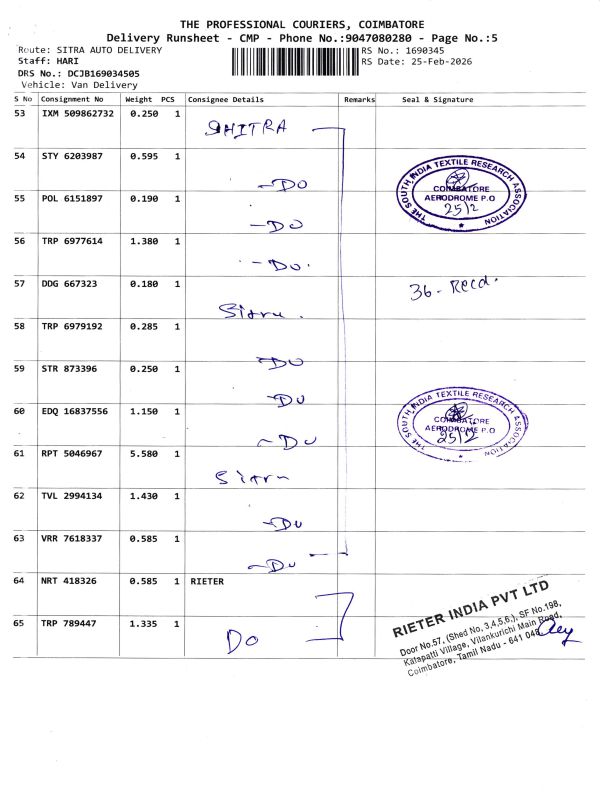 THE PROFESSIONAL COURIERS, COIMBATORE
Delivery Runsheet - CMP - Phone No.:9047080280 - Page No.:5
Route: SITRA AUTO DELIVERY
RS No.: 1690345
Staff: HARI
RS Date: 25-Feb-2026
DRS No.: DCJB169034505
Vehicle: Van Delivery
S No Consignment No Weight PCS Consignee Details Remarks Seal & Signature
53 IXM 509862732 0.250 1
SHITRA
54 STY 6203987 0.595 1
-DO
THE SOUTH INDIA TEXTILE RESEARCH ASSOCIATION
COIMBATORE
AERODROME P.O
25/2
55 POL 6151897 0.190 1
-DO
56 TRP 6977614 1.380 1
-DO.
57 DDG 667323 0.180 1
Sitru.
36- Recd.
58 TRP 6979192 0.285 1
-DU
59 STR 873396 0.250 1
-DU
60 EDQ 16837556 1.150 1
-DU
THE SOUTH INDIA TEXTILE RESEARCH ASSOCIATION
COIMBATORE
AERODROME P.O
25/2
61 RPT 5046967 5.580 1
Sitru
62 TVL 2994134 1.430 1
-DU
63 VRR 7618337 0.585 1
-DU
64 NRT 418326 0.585 1 RIETER
65 TRP 789447 1.335 1
DO
RIETER INDIA PVT LTD
Door No.57, (Shed No. 3,4,5,6,), SF No.198,
Kalapatti Village, Vilankurichi Main Road,
Coimbatore, Tamil Nadu - 641 048